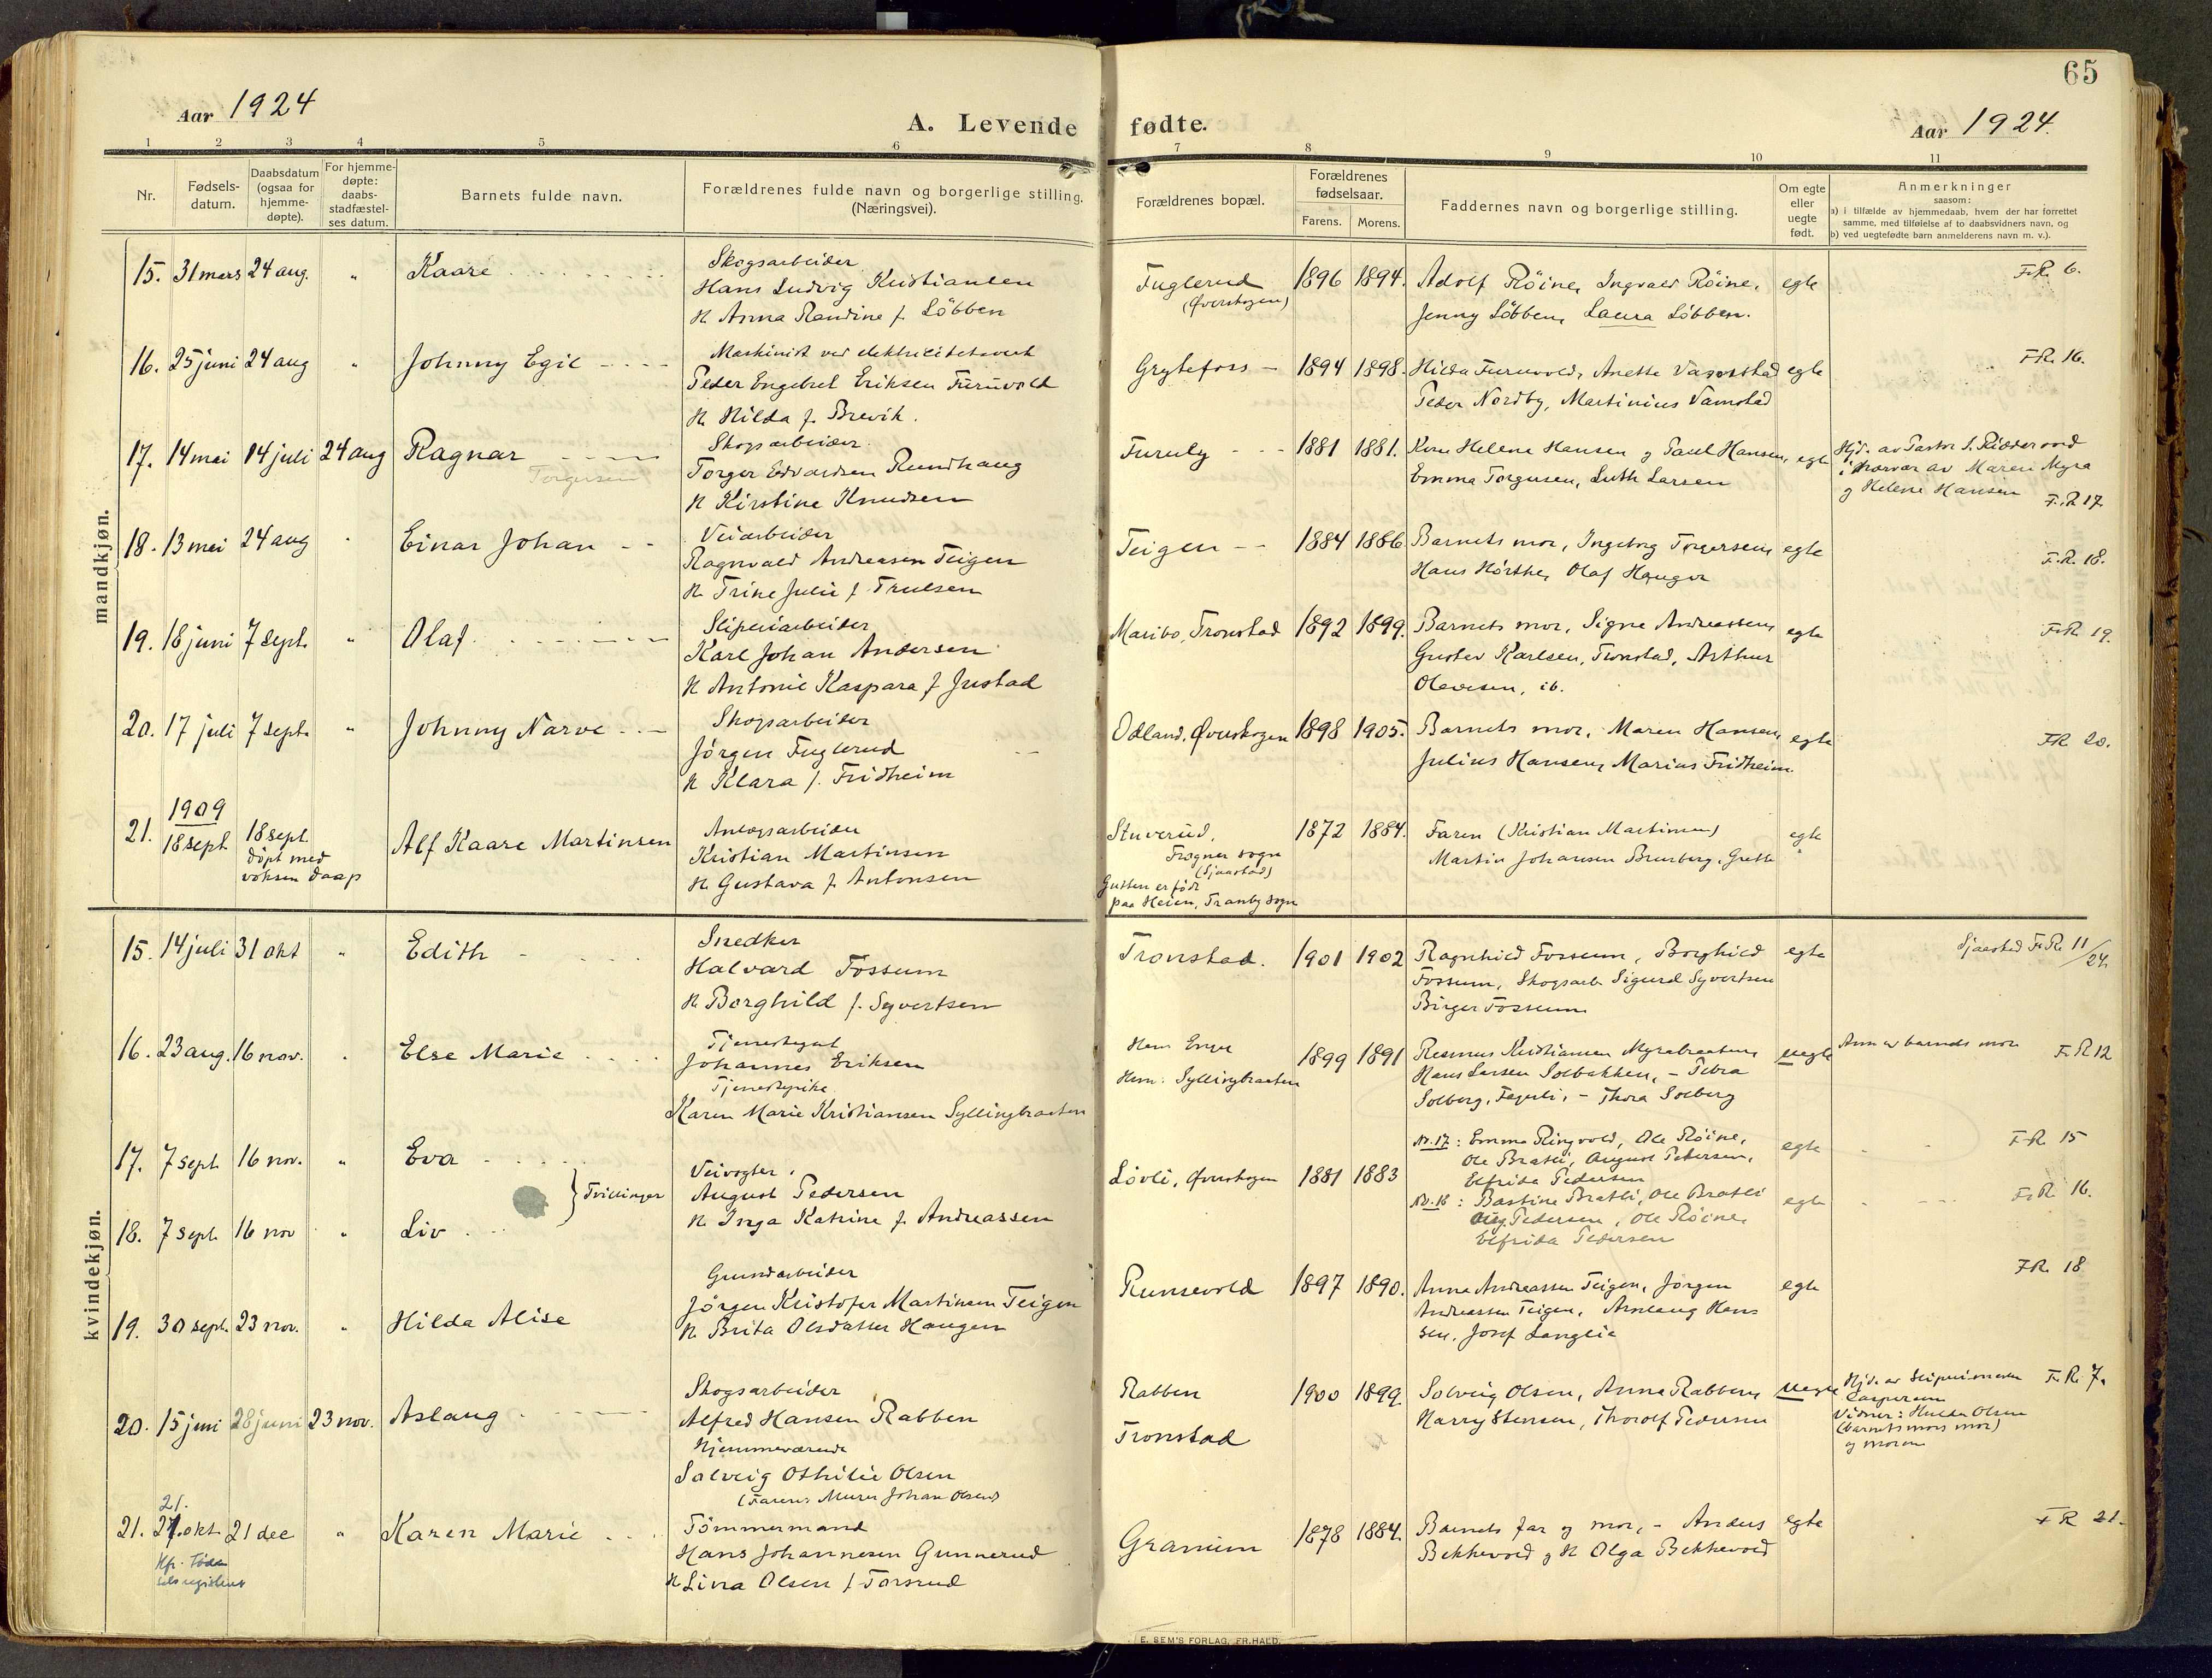 65
Aar 1924
A. Levende fødte.
Aar 1924.
1 2 3 4 5 6 7 8 9 10 11
Nr.
Fødsels-
datum.
Daabsdatum
(ogsaa for
hjemme-
døpte).
For hjemme-
døpte:
daabs-
stadfæstel-
ses datum.
Barnets fulde navn.
Forældrenes fulde navn og borgerlige stilling.
(Næringsvei).
Forældrenes bopæl.
Forældrenes
fødselsaar.
Farens. Morens.
Faddernes navn og borgerlige stilling.
Om egte
eller
uegte
født.
Anmerkninger
saasom:
a) i tilfælde av hjemmedaab, hvem der har forrettet
samme, med tilføielse af to daabsvidners navn, og
b) ved uegtefødte barn anmelderens navn m. v.).
mandkjøn.
15. 31 mars 24 aug. " Kaare
Skogsarbeider
Hans Ludvig Kristiansen
H. Anna Randine f. Löbben
Fuglerud
(Øverskogen)
1896 1894.
Adolf Röine, Ingvald Röine,
Jenny Löbben, Laura Löbben.
egte
F.R. 6.
16. 25 juni 24 aug " Johnny Egil
Maskinist ved elektricitetsverk
Peder Engebret Eriksen Furuvold
H. Hilda f. Brevik.
Grytefoss
1894 1898.
Hilda Furuvold, Anette Vamstad
Peder Nordby, Martinius Vamstad
egte
F.R. 16.
17. 14 mai 14 juli 24 aug Ragnar
Torgersen
Skogsarbeider.
Torger Edvardsen Rundhaug
H. Kirstine Knudsen
Furuly
1881 1881.
Helene Hansen og Paul Hansen,
Emma Torgersen, Luth Larsen
egte
Hjd. av Pastor S. Riddervold
i nærvær av Maren Myra
og Helene Hansen
F.R. 17.
18. 13 mai 24 aug " Einar Johan
Veiarbeider
Ragnvald Andreasen Teigen
H. Trine Julie f. Trulsen
Teigen
1884 1886
Barnets mor, Ingeborg Torgersen,
Hans Hörthe, Olaf Haugen
egte
F.R. 18.
19. 18 juni 7 sept. " Olaf
Sliperiarbeider
Karl Johan Andersen
H. Antonie Kaspara f. Justad
Maribo, Tronstad
1892 1899.
Barnets mor, Signe Andreassen,
Gustav Karlsen, Tronstad, Arthur
Olavesen, ib.
egte
F.R. 19.
20. 17 juli 7 sept. " Johnny Narve
Skogsarbeider
Jørgen Fuglerud
H. Klara f. Fridheim
Odland, Øverskogen
1898 1905.
Barnets mor, Maren Hansen,
Julius Hansen, Marius Fridheim.
egte
F.R. 20.
21. 1909
18 sept
18 sept.
döpt med
voksen daap
Alf Kaare Martinsen
Anlægsarbeider
Kristian Martinsen
H. Gustava f. Antonsen
Stuverud,
Frogner sogn
(Sjaastad)
Gutten er född
paa Heien, Tranby sogn
1872 1884.
Faren (Kristian Martinsen)
Martin Johansen Brusberg, Grette
egte
kvindekjøn.
15. 14 juli 31 okt " Edith
Snedker
Halvard Fossum
H. Borghild f. Syvertsen
Tronstad.
1901 1902
Ragnhild Fossum, Borghild
Fossum, Skogsarb. Sigurd Syvertsen
Birger Fossum
egte
Sjaastad F.R. 11/24.
16. 23 aug. 16 nov. " Else Marie
Tjenestegut
Johannes Eriksen
Tjenestepike
Karen Marie Kristiansen Syllingbraaten
Ham: Enger
Hun: Syllingbraaten
1899 1891
Rasmus Kristiansen Myrabraaten,
Hans Larsen Solbakken, - Petra
Solberg, - Thora Solberg
uegte
Anm av barnets mor
F.R. 12
17. 7 sept. 16 nov. " Eva
Tvillinger
18. 7 sept. 16 nov " Liv
Veivogter.
August Pedersen
H. Inga Katrine f. Andreassen
Lövli, Øverskogen
1881 1883
Nr. 17: Emma Ringvold, Ole Röine,
Ole Bratli, August Pedersen,
Elfrida Pedersen
egte
F.R. 15
Nr. 18: Bastine Bratli, Ole Bratli
Aug. Pedersen, Ole Röine,
Elfrida Pedersen
egte
F.R. 16.
19. 30 sept. 23 nov. " Hilda Alise
Grundarbeider
Jørgen Kristofer Martinsen Teigen
H. Brita Olsdatter Haugen
Runsevold
1897 1890.
Anna Andreassen Teigen, Jørgen
Andreassen Teigen, Aslaug Han-
sen, Josef Langlie
egte
F.R. 18
20. 15 juni 28 juni 23 nov. Aslaug
Skogsarbeider
Alfred Hansen Rabben
Hjemmeværende
Solveig Othilie Olsen
(Faren: Murer Johan Olsen)
Rabben
Tronstad
1900 1899.
Solveig Olsen, Anna Rabben,
Harry Stensen, Thorolf Pedersen
uegte
Hjd. av
Caspersen
Vidner: Hulda Olsen
(barnets mors mor)
og moren
F.R. 7.
21. 21.
27. okt 21 dec " Karen Marie
Kfr. Föd-
selsregisteret
Tömmermand
Hans Johannesen Gunnerud
H. Lina Olsen f. Torsrud
Granum
1878 1884.
Barnets far og mor, - Anders
Bekkevold og H. Olga Bekkevold
egte
F.R. 21.
E. SEM'S FORLAG, FR.HALD.